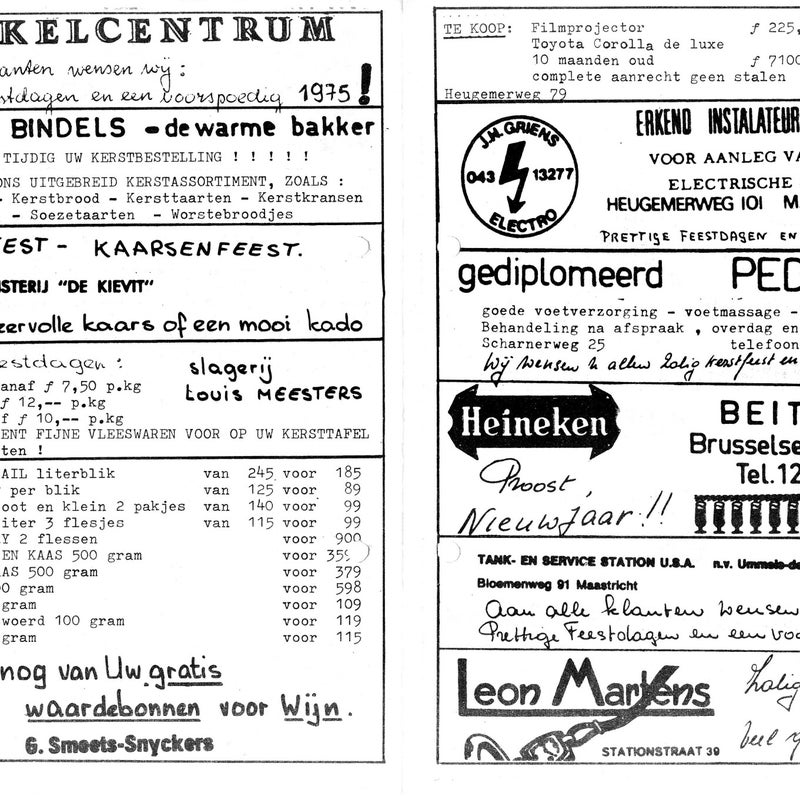 KELCENTRUM
anten wensen wij :
stdagen en een voorspoedig 1975!
BINDELS - de warme bakker
TIJDIG UW KERSTBESTELLING ! ! ! ! !
ONS UITGEBREID KERSTASSORTIMENT, ZOALS :
- Kerstbrood - Kersttaarten - Kerstkransen
- Soezetaarten - Worstebroodjes
EEST - KAARSENFEEST.
STERIJ "DE KIEVIT"
eervolle kaars of een mooi kado
estdagen :
slagerij
Louis MEESTERS
anaf ƒ 7,50 p.kg
ƒ 12,-- p.kg
f ƒ 10,-- p.kg
ENT FIJNE VLEESWAREN VOOR OP UW KERSTTAFEL
ten !
AIL literblik van 245 voor 185
per blik van 125 voor 89
oot en klein 2 pakjes van 140 voor 99
iter 3 flesjes van 115 voor 99
Y 2 flessen voor 900
EN KAAS 500 gram voor 359
AS 500 gram voor 379
0 gram voor 598
gram voor 109
woerd 100 gram voor 119
gram voor 115
nog van Uw gratis
waardebonnen voor Wijn.
G. Smeets-Snyckers
TE KOOP: Filmprojector ƒ 225,
Toyota Corolla de luxe
10 maanden oud ƒ 7100
complete aanrecht geen stalen
Heugemerweg 79
J.H. GRIENS
043 13277
ELECTRO
ERKEND INSTALATEUR
VOOR AANLEG VA
ELECTRISCHE
HEUGEMERWEG 101 M
PRETTIGE FEESTDAGEN EN
gediplomeerd PED
goede voetverzorging - voetmassage -
Behandeling na afspraak , overdag en
Scharnerweg 25 telefoon
Wij wensen U allen Zalig Kerstfeest en
Heineken
BEIT
Brusselse
Tel. 12
Proost,
Nieuwjaar !!
TANK- EN SERVICE STATION U.S.A. n.v. Ummels-de
Bloemenweg 91 Maastricht
Aan alle klanten wensen
Prettige Feestdagen en een voo
Leon Martens
Zalig
STATIONSTRAAT 39
veel